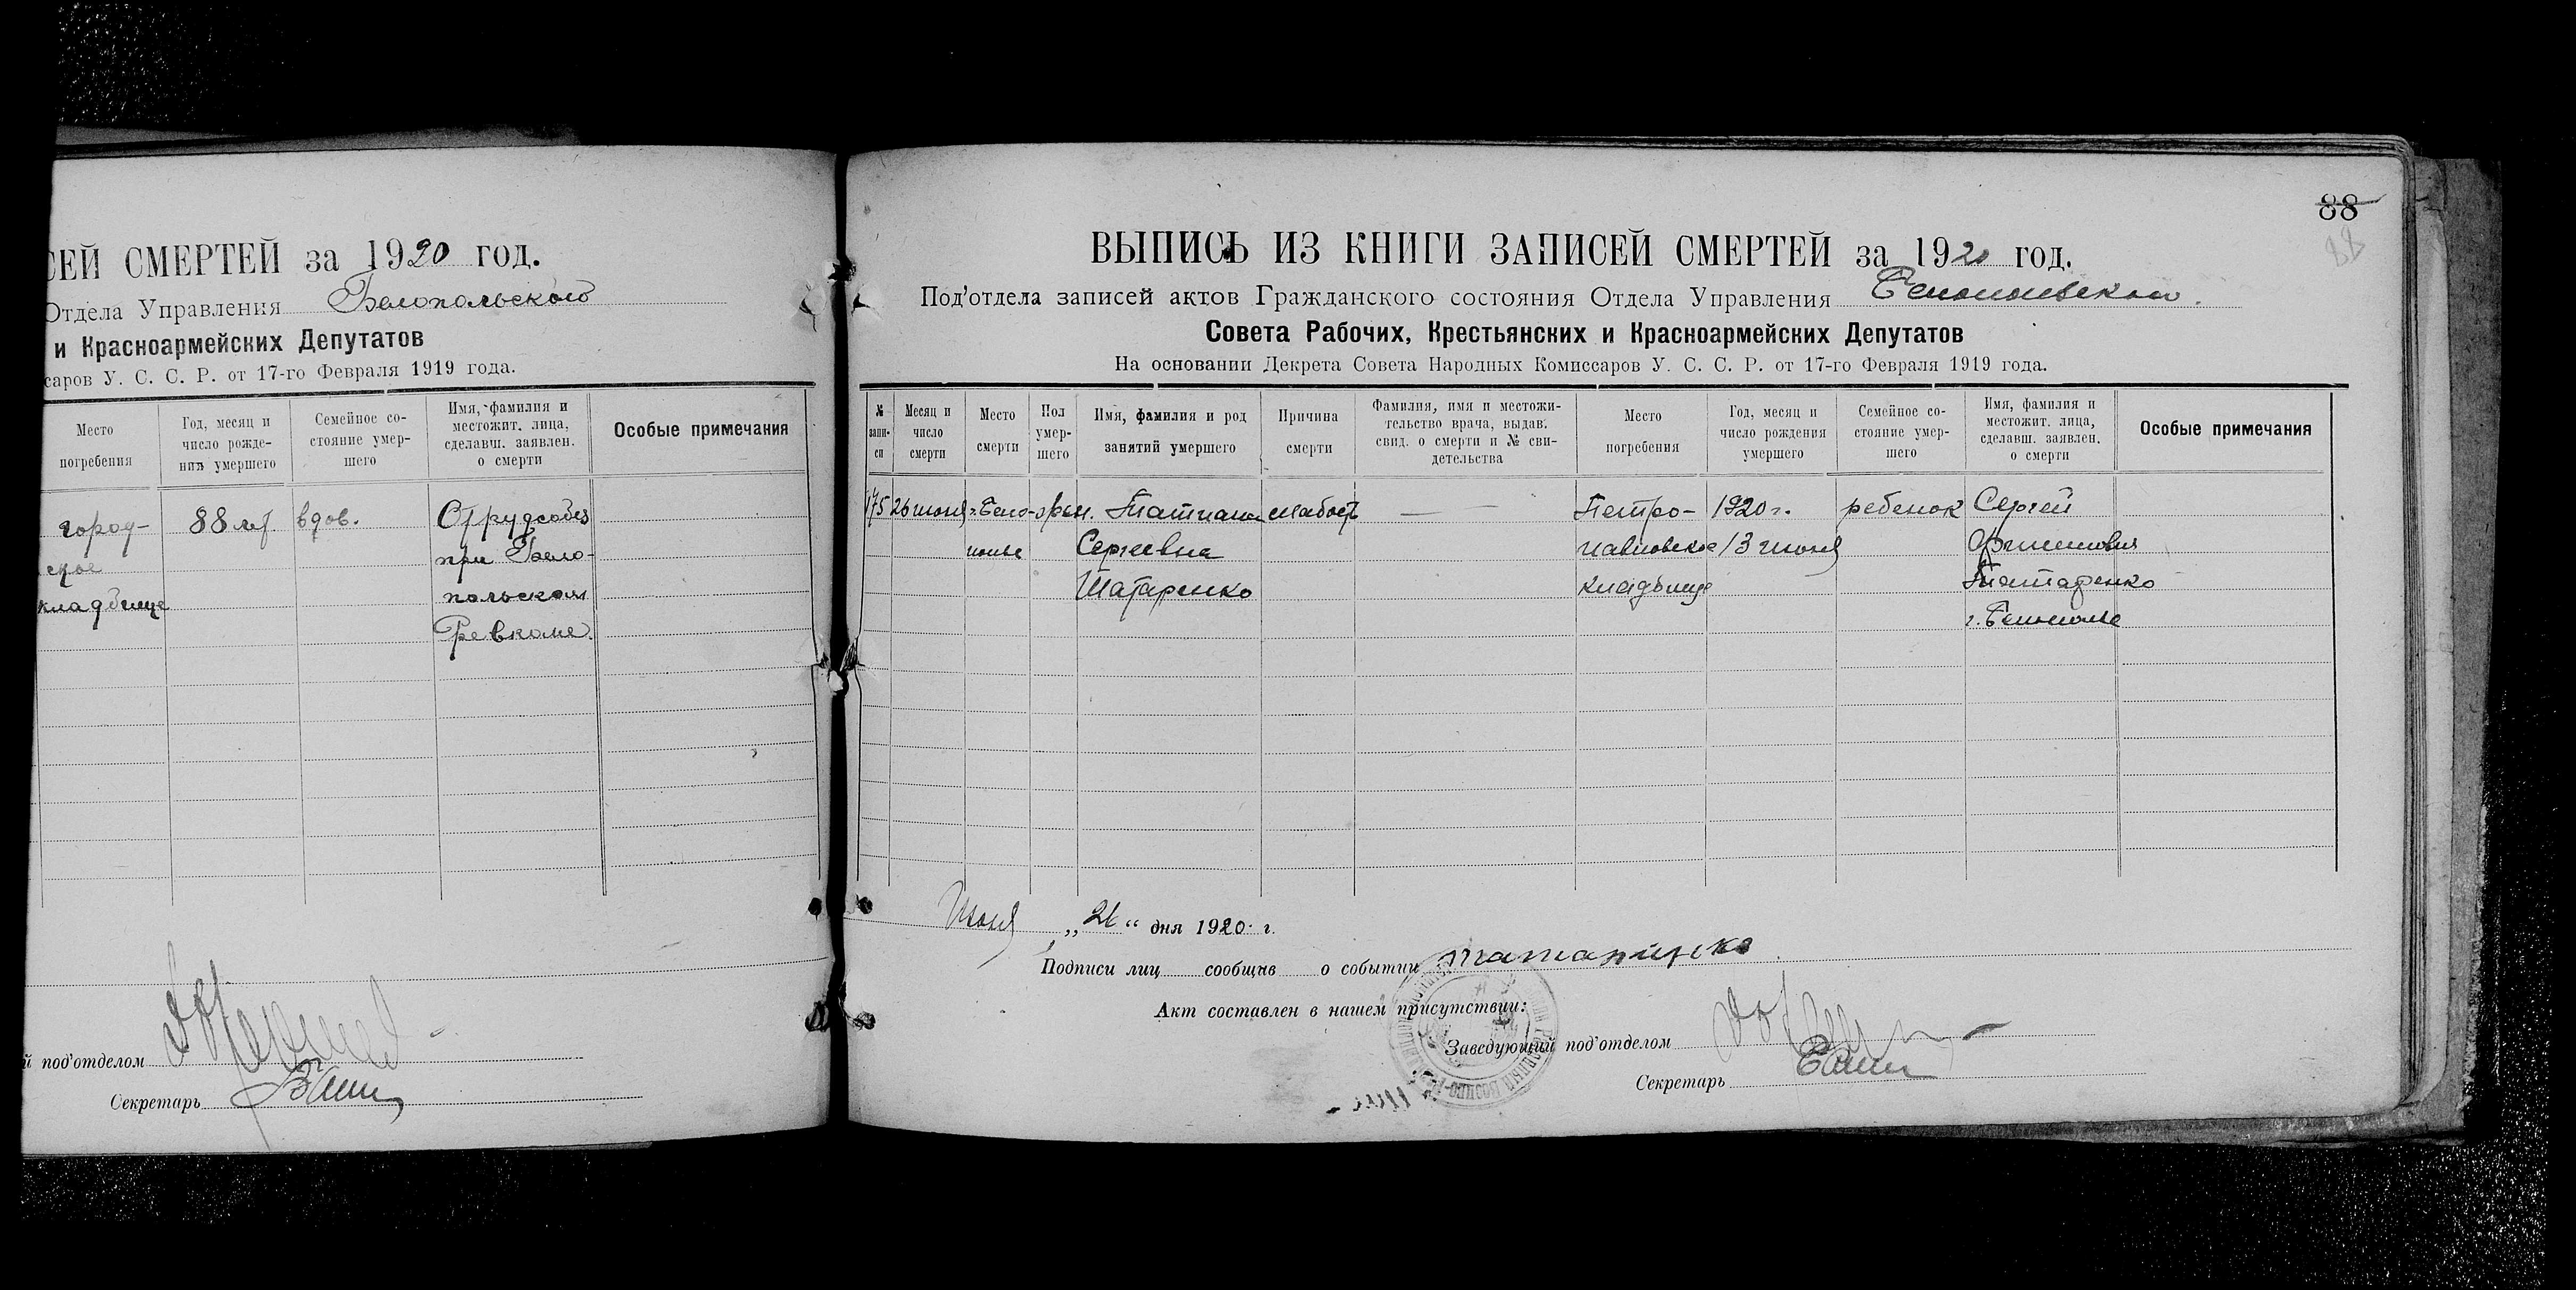 СЕЙ СМЕРТЕЙ за 1920 год.
Отдела Управления Белопольского
и Красноармейских Депутатов
саров У. С. С. Р. от 17-го Февраля 1919 года.
Место
погребения
Год, месяц и
число рожде-
ния умершего
Семейное со-
стояние умер-
шего
Имя, фамилия и
местожит. лица,
сделавш. заявлен.
о смерти
Особые примечания
город-
ское
кладбище
88 лет
вдов.
Отрудсобез
при Бело-
польском
Ревкоме.
й под'отделом
Секретарь
88
88
ВЫПИСЬ ИЗ КНИГИ ЗАПИСЕЙ СМЕРТЕЙ за 1920 год.
Под'отдела записей актов Гражданского состояния Отдела Управления Белопольском
Совета Рабочих, Крестьянских и Красноармейских Депутатов
На основании Декрета Совета Народных Комиссаров У. С. С. Р. от 17-го Февраля 1919 года.
№
запи-
си
Месяц и
число
смерти
Место
смерти
Пол
умер-
шего
Имя, фамилия и род
занятий умершего
Причина
смерти
Фамилия, имя и местожи-
тельство врача, выдав.
свид. о смерти и № сви-
детельства
Место
погребения
Год, месяц и
число рождения
умершего
Семейное со-
стояние умер-
шего
Имя, фамилия и
местожит. лица,
сделавш. заявлен.
о смерти
Особые примечания
175
26 июня
г. Бело-
полье
жен.
Татиана
Сергеевна
Татаренко
слабость
Петро-
павловское
кладбище
1920 г.
13 июня
ребенок
Сергей
Филиппович
Татаренко
г. Белополье
Июня „26“ дня 1920 г.
Подписи лиц сообщив о событии Татаринко
Акт составлен в нашем присутствии:
Заведующий под'отделом
Секретарь